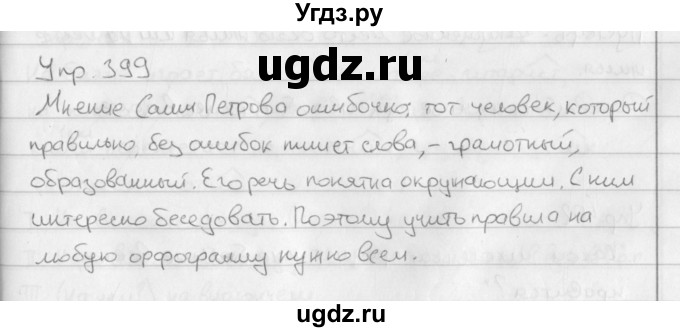 Угдз.ру
ugdz.ru
Упр. 399
Мнение Саши Петрова ошибочно; тот человек, который
правильно, без ошибок пишет слова, – грамотный,
образованный. Его речь понятна окружающим. С ним
интересно беседовать. Поэтому учить правила на
любую орфограмму нужно всем.
ugdz.ru